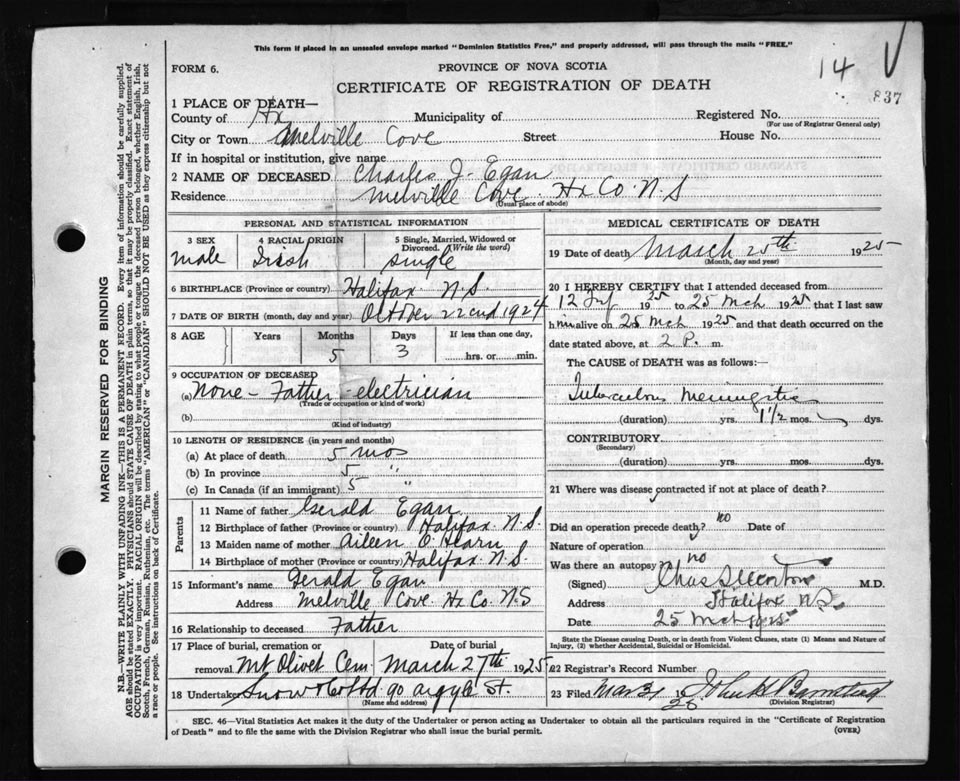 This form if placed in an unsealed envelope marked "Dominion Statistics Free," and properly addressed, will pass through the mails "FREE."
FORM 6.
PROVINCE OF NOVA SCOTIA
14 V
837
CERTIFICATE OF REGISTRATION OF DEATH
1 PLACE OF DEATH—
County of Hx Municipality of Registered No.
(For use of Registrar General only)
City or Town Melville Cove Street House No.
If in hospital or institution, give name
2 NAME OF DECEASED Charles J. Egan
Residence Melville Cove Hx Co. N.S
(Usual place of abode)
PERSONAL AND STATISTICAL INFORMATION
3 SEX 4 RACIAL ORIGIN 5 Single, Married, Widowed or Divorced. (Write the word)
male Irish single
6 BIRTHPLACE (Province or country) Halifax N.S.
7 DATE OF BIRTH (month, day and year) October 22nd 1924
8 AGE Years Months Days If less than one day,
5 3 hrs. or min.
9 OCCUPATION OF DECEASED
(a) None – Father – electrician
(Trade or occupation or kind of work)
(b)
(Kind of industry)
10 LENGTH OF RESIDENCE (in years and months)
(a) At place of death 5 mos
(b) In province 5 "
(c) In Canada (if an immigrant) 5 "
Parents
11 Name of father Gerald Egan
12 Birthplace of father (Province or country) Halifax N.S.
13 Maiden name of mother Aileen C. Hearn
14 Birthplace of mother (Province or country) Halifax N.S.
15 Informant's name Gerald Egan
Address Melville Cove Hx Co. N.S
16 Relationship to deceased Father
17 Place of burial, cremation or removal Date of burial
Mt Olivet Cem. March 27th 1925
18 Undertaker Snow & Co Ltd 90 Argyle St.
(Name and address)
MEDICAL CERTIFICATE OF DEATH
19 Date of death March 25th 1925
(Month, day and year)
20 I HEREBY CERTIFY that I attended deceased from
1925 to 25 Mch 1925 that I last saw
him alive on 25 Mch 1925 and that death occurred on the
date stated above, at 2 P. m.
The CAUSE of DEATH was as follows:—
Tuberculous Meningitis
(duration) yrs. 1 1/2 mos. dys.
CONTRIBUTORY
(Secondary)
(duration) yrs. mos. dys.
21 Where was disease contracted if not at place of death?
Did an operation precede death? no Date of
Nature of operation
Was there an autopsy? no
(Signed) Chas M.D.
Address Halifax N.S.
Date 25 Mch
State the Disease causing Death, or in death from Violent Causes, state (1) Means and Nature of Injury, (2) whether Accidental, Suicidal or Homicidal.
22 Registrar's Record Number
23 Filed Mar 31 19 25 John H Barnstead
(Division Registrar)
SEC. 46—Vital Statistics Act makes it the duty of the Undertaker or person acting as Undertaker to obtain all the particulars required in the "Certificate of Registration
of Death" and to file the same with the Division Registrar who shall issue the burial permit. (OVER)
MARGIN RESERVED FOR BINDING
N.B.—WRITE PLAINLY WITH UNFADING INK—THIS IS A PERMANENT RECORD. Every item of information should be carefully supplied.
AGE should be stated EXACTLY. PHYSICIANS should STATE CAUSE OF DEATH in plain terms, so that it may be properly classified. Exact statement of
OCCUPATION is very important. RACIAL ORIGIN will be described by stating to what people or tongue the deceased person belonged, whether English, Irish,
Scotch, French, German, Russian, Ruthenian, etc. The terms "AMERICAN" or "CANADIAN" SHOULD NOT BE USED as they express citizenship but not
a race or people. See instructions on back of Certificate.